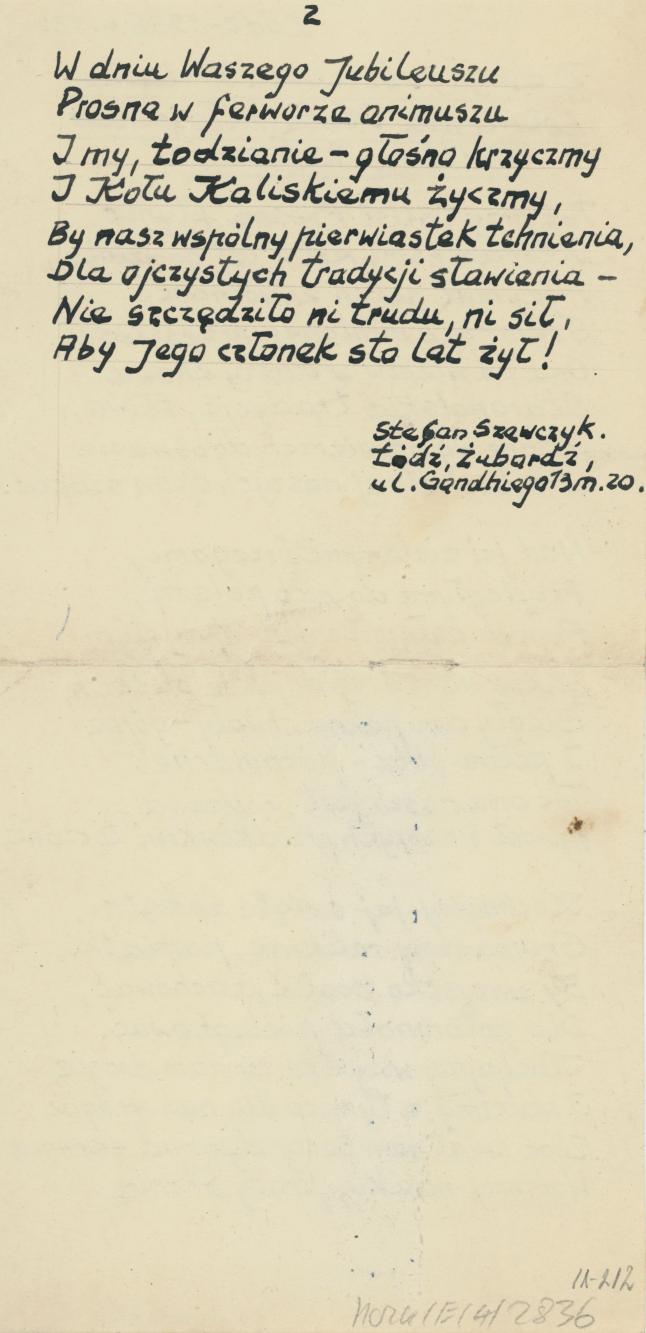 2
W dniu Waszego Jubileuszu
Prosna w ferworze animuszu
I my, Łodzianie – głośno krzyczmy
I Kołu Kaliskiemu życzmy,
By nasz wspólny pierwiastek tchnienia,
Dla ojczystych tradycji sławienia –
Nie szczędziło ni trudu, ni sił,
Aby Jego członek sto lat żył!
Stefan Szewczyk.
Łódź, Żubardź,
ul. Gandhiego 13 m. 20.
/E/4/2836